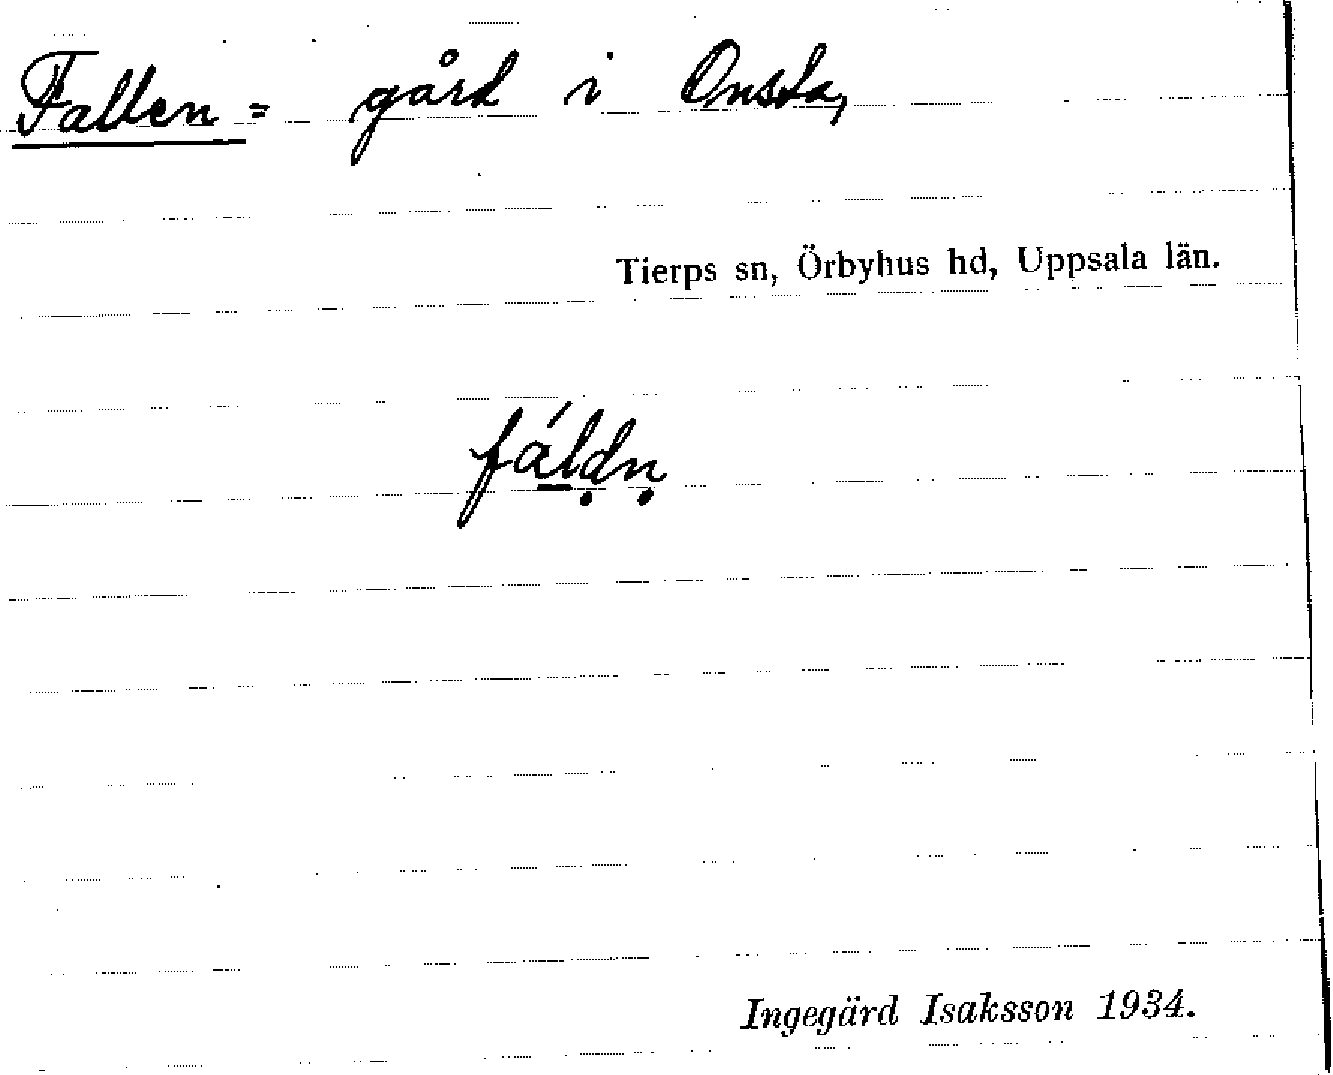 Fallen = gård i Onsta,
Tierps sn, Örbyhus hd, Uppsala län.
fáḷdṇ
Ingegärd Isaksson 1934.